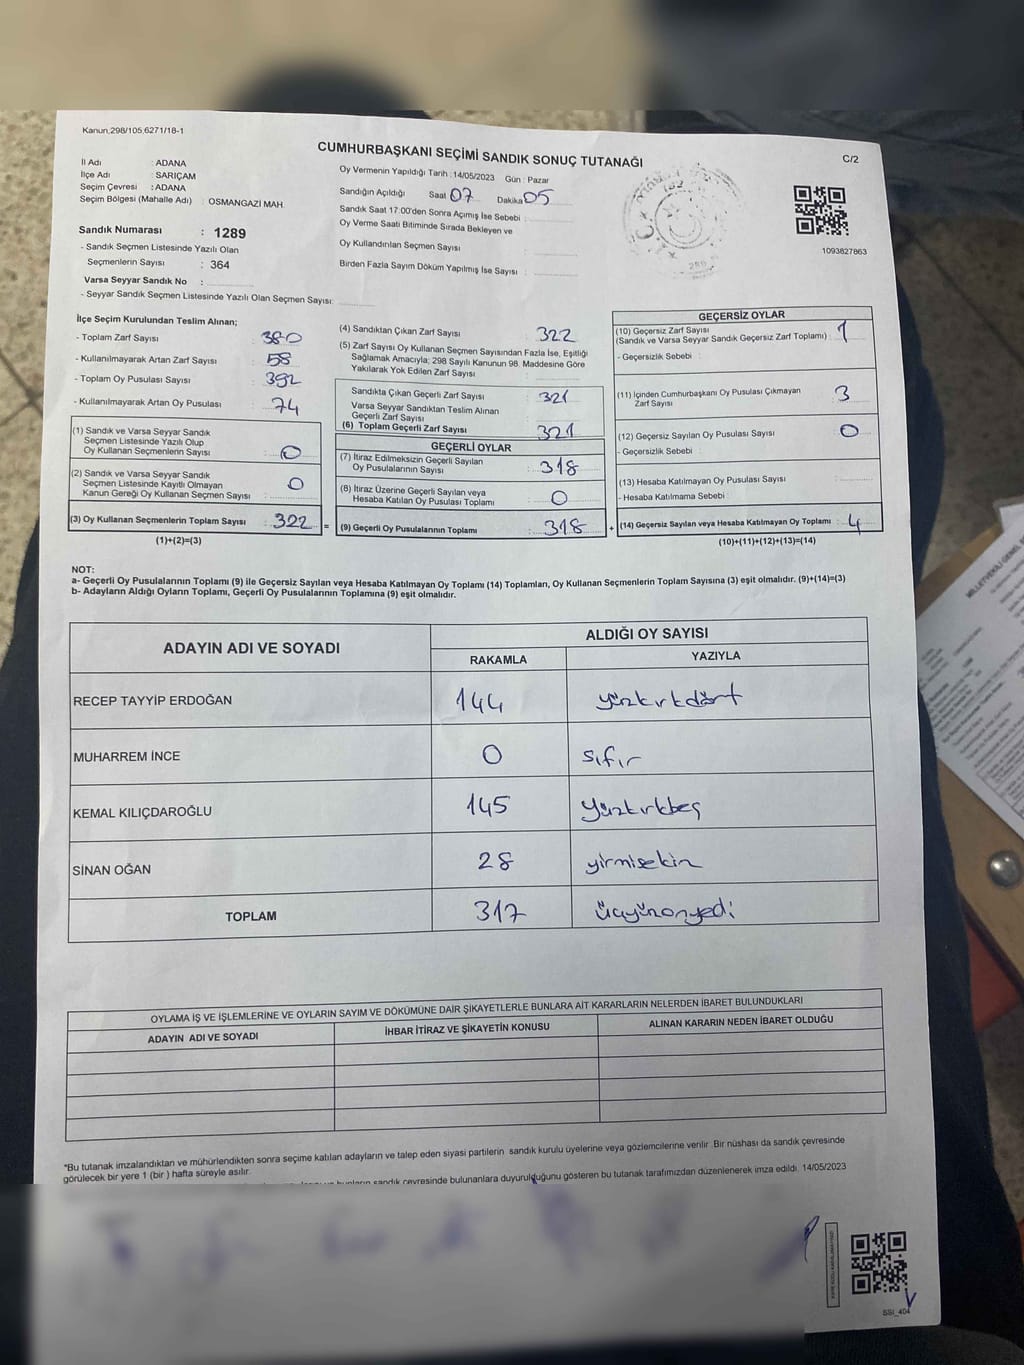 Kanun.298/105,6271/18-1
CUMHURBAŞKANI SEÇİMİ SANDIK SONUÇ TUTANAĞI
C/2
İl Adı : ADANA
İlçe Adı : SARIÇAM
Seçim Çevresi : ADANA
Seçim Bölgesi (Mahalle Adı) : OSMANGAZİ MAH.
Sandık Numarası : 1289
- Sandık Seçmen Listesinde Yazılı Olan
Seçmenlerin Sayısı : 364
Varsa Seyyar Sandık No :
- Seyyar Sandık Seçmen Listesinde Yazılı Olan Seçmen Sayısı:
Oy Vermenin Yapıldığı Tarih : 14/05/2023 Gün : Pazar
Sandığın Açıldığı Saat 07 Dakika 05
Sandık Saat 17:00'den Sonra Açımış İse Sebebi :
Oy Verme Saati Bitiminde Sırada Bekleyen ve
Oy Kullandırılan Seçmen Sayısı
Birden Fazla Sayım Döküm Yapılmış İse Sayısı :
1093827863
İlçe Seçim Kurulundan Teslim Alınan;
- Toplam Zarf Sayısı : 380
- Kullanılmayarak Artan Zarf Sayısı : 58
- Toplam Oy Pusulası Sayısı : 392
- Kullanılmayarak Artan Oy Pusulası : 74
(1) Sandık ve Varsa Seyyar Sandık
Seçmen Listesinde Yazılı Olup
Oy Kullanan Seçmenlerin Sayısı : 0
(2) Sandık ve Varsa Seyyar Sandık
Seçmen Listesinde Kayıtlı Olmayan
Kanun Gereği Oy Kullanan Seçmen Sayısı : 0
(3) Oy Kullanan Seçmenlerin Toplam Sayısı : 322
(1)+(2)=(3)
(4) Sandıktan Çıkan Zarf Sayısı : 322
(5) Zarf Sayısı Oy Kullanan Seçmen Sayısından Fazla İse, Eşitliği
Sağlamak Amacıyla; 298 Sayılı Kanunun 98. Maddesine Göre
Yakılarak Yok Edilen Zarf Sayısı :
Sandıkta Çıkan Geçerli Zarf Sayısı : 321
Varsa Seyyar Sandıktan Teslim Alınan
Geçerli Zarf Sayısı
(6) Toplam Geçerli Zarf Sayısı : 321
GEÇERLİ OYLAR
(7) İtiraz Edilmeksizin Geçerli Sayılan
Oy Pusulalarının Sayısı : 318
(8) İtiraz Üzerine Geçerli Sayılan veya
Hesaba Katılan Oy Pusulası Toplamı : 0
= (9) Geçerli Oy Pusulalarının Toplamı : 318
GEÇERSİZ OYLAR
(10) Geçersiz Zarf Sayısı
(Sandık ve Varsa Seyyar Sandık Geçersiz Zarf Toplamı) : 1
- Geçersizlik Sebebi :
(11) İçinden Cumhurbaşkanı Oy Pusulası Çıkmayan
Zarf Sayısı : 3
(12) Geçersiz Sayılan Oy Pusulası Sayısı : 0
- Geçersizlik Sebebi :
(13) Hesaba Katılmayan Oy Pusulası Sayısı :
- Hesaba Katılmama Sebebi :
+ (14) Geçersiz Sayılan veya Hesaba Katılmayan Oy Toplamı : 4
(10)+(11)+(12)+(13)=(14)
NOT:
a- Geçerli Oy Pusulalarının Toplamı (9) ile Geçersiz Sayılan veya Hesaba Katılmayan Oy Toplamı (14) Toplamları, Oy Kullanan Seçmenlerin Toplam Sayısına (3) eşit olmalıdır. (9)+(14)=(3)
b- Adayların Aldığı Oyların Toplamı, Geçerli Oy Pusulalarının Toplamına (9) eşit olmalıdır.
ADAYIN ADI VE SOYADI
ALDIĞI OY SAYISI
RAKAMLA YAZIYLA
RECEP TAYYİP ERDOĞAN 144 yüzkırkdört
MUHARREM İNCE 0 sıfır
KEMAL KILIÇDAROĞLU 145 yüzkırkbeş
SİNAN OĞAN 28 yirmisekiz
TOPLAM 317 üçyüzonyedi
OYLAMA İŞ VE İŞLEMLERİNE VE OYLARIN SAYIM VE DÖKÜMÜNE DAİR ŞİKAYETLERLE BUNLARA AİT KARARLARIN NELERDEN İBARET BULUNDUKLARI
ADAYIN ADI VE SOYADI İHBAR İTİRAZ VE ŞİKAYETİN KONUSU ALINAN KARARIN NEDEN İBARET OLDUĞU
*Bu tutanak imzalandıktan ve mühürlendikten sonra seçime katılan adayların ve talep eden siyasi partilerin sandık kurulu üyelerine veya gözlemcilerine verilir. Bir nüshası da sandık çevresinde
görülecek bir yere 1 (bir ) hafta süreyle asılır.
sandık çevresinde bulunanlara duyurulduğunu gösteren bu tutanak tarafımızdan düzenlenerek imza edildi. 14/05/2023
SSI_404